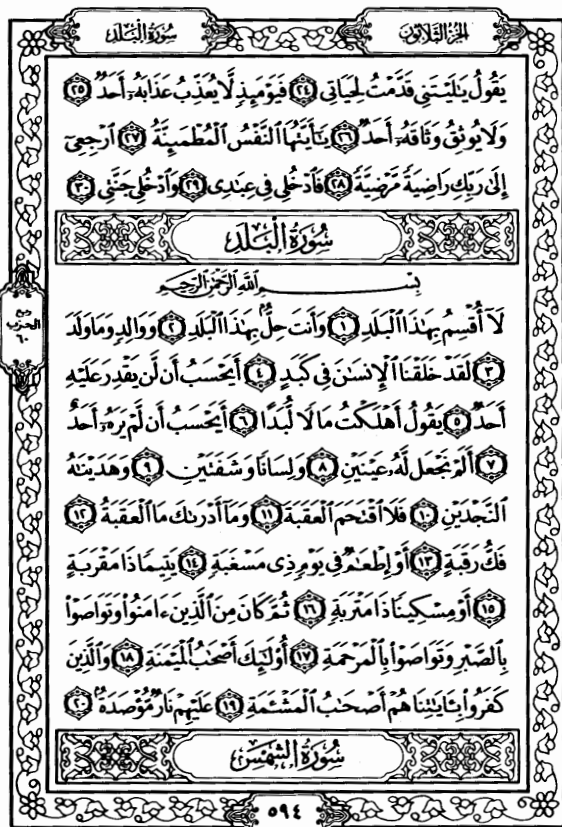 سُورَةُ الْبَلَدِ
الجُزءُ الثَّلَاثُونَ
يَقُولُ يَٰلَيْتَنِى قَدَّمْتُ لِحَيَاتِى ﴿٢٤﴾ فَيَوْمَئِذٍ لَّا يُعَذِّبُ عَذَابَهُۥٓ أَحَدٌ ﴿٢٥﴾
وَلَا يُوثِقُ وَثَاقَهُۥٓ أَحَدٌ ﴿٢٦﴾ يَٰٓأَيَّتُهَا النَّفْسُ الْمُطْمَئِنَّةُ ﴿٢٧﴾ ارْجِعِىٓ
إِلَىٰ رَبِّكِ رَاضِيَةً مَّرْضِيَّةً ﴿٢٨﴾ فَادْخُلِى فِى عِبَٰدِى ﴿٢٩﴾ وَادْخُلِى جَنَّتِى ﴿٣٠﴾
سُورَةُ الْبَلَدِ
بِسْمِ اللَّهِ الرَّحْمَٰنِ الرَّحِيمِ
لَآ أُقْسِمُ بِهَٰذَا الْبَلَدِ ﴿١﴾ وَأَنتَ حِلٌّۢ بِهَٰذَا الْبَلَدِ ﴿٢﴾ وَوَالِدٍ وَمَا وَلَدَ
﴿٣﴾ لَقَدْ خَلَقْنَا الْإِنسَٰنَ فِى كَبَدٍ ﴿٤﴾ أَيَحْسَبُ أَن لَّن يَقْدِرَ عَلَيْهِ
أَحَدٌ ﴿٥﴾ يَقُولُ أَهْلَكْتُ مَالًا لُّبَدًا ﴿٦﴾ أَيَحْسَبُ أَن لَّمْ يَرَهُۥٓ أَحَدٌ
﴿٧﴾ أَلَمْ نَجْعَل لَّهُۥ عَيْنَيْنِ ﴿٨﴾ وَلِسَانًا وَشَفَتَيْنِ ﴿٩﴾ وَهَدَيْنَٰهُ
النَّجْدَيْنِ ﴿١٠﴾ فَلَا اقْتَحَمَ الْعَقَبَةَ ﴿١١﴾ وَمَآ أَدْرَىٰكَ مَا الْعَقَبَةُ ﴿١٢﴾
فَكُّ رَقَبَةٍ ﴿١٣﴾ أَوْ إِطْعَٰمٌ فِى يَوْمٍ ذِى مَسْغَبَةٍ ﴿١٤﴾ يَتِيمًا ذَا مَقْرَبَةٍ
﴿١٥﴾ أَوْ مِسْكِينًا ذَا مَتْرَبَةٍ ﴿١٦﴾ ثُمَّ كَانَ مِنَ الَّذِينَ ءَامَنُوا وَتَوَاصَوْا
بِالصَّبْرِ وَتَوَاصَوْا بِالْمَرْحَمَةِ ﴿١٧﴾ أُو۟لَٰٓئِكَ أَصْحَٰبُ الْمَيْمَنَةِ ﴿١٨﴾ وَالَّذِينَ
كَفَرُوا بِـَٔايَٰتِنَا هُمْ أَصْحَٰبُ الْمَشْـَٔمَةِ ﴿١٩﴾ عَلَيْهِمْ نَارٌ مُّؤْصَدَةٌۢ ﴿٢٠﴾
سُورَةُ الشَّمْسِ
ربع
الحزب
٦٠
٥٩٤